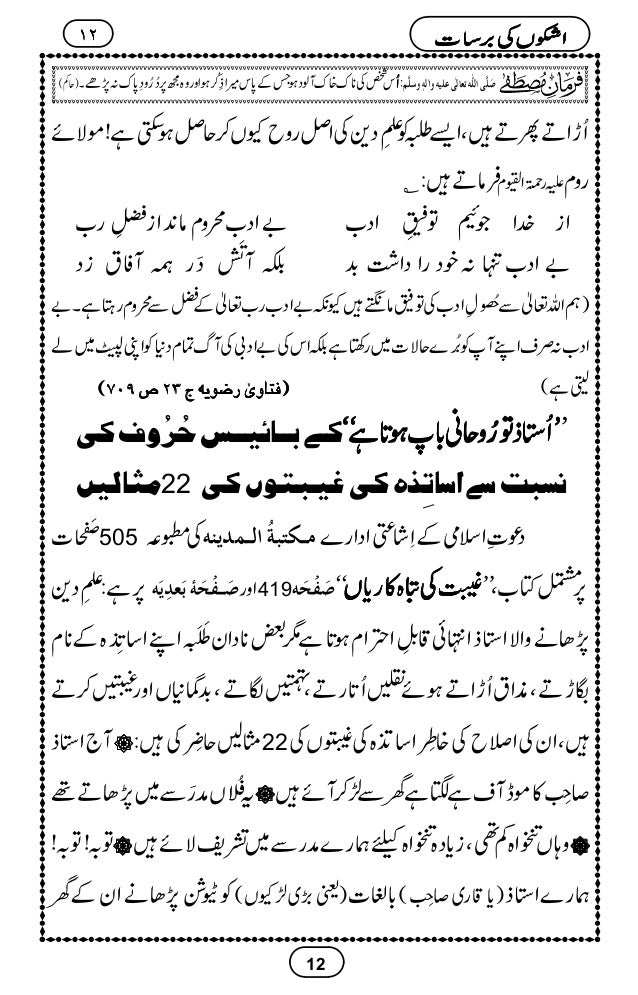 اشکوں کی برسات
۱۲
فرمانِ مصطفےٰ صلی اللہ تعالی علیہ والہ وسلم: اُس شخص کی ناک خاک آلود ہو جس کے پاس میرا ذِکر ہو اور وہ مجھ پر دُرُودِ پاک نہ پڑھے۔ (حاکم)
اُڑاتے پھرتے ہیں، ایسے طلبہ کو علمِ دین کی اصل روح کیوں کر حاصل ہو سکتی ہے! مولائے
روم علیہ رحمۃ القیوم فرماتے ہیں: ؎
از خدا جوئیم توفیقِ ادب بے ادب محروم مانداز فضلِ رب
بے ادب تنہا نہ خود را داشت بد بلکہ آتَش دَر ہمہ آفاق زد
(ہم اللہ تعالیٰ سے حُصولِ ادب کی توفیق مانگتے ہیں کیونکہ بے ادب رب تعالیٰ کے فضل سے محروم رہتا ہے۔ بے
ادب نہ صرف اپنے آپ کو بُرے حالات میں رکھتا ہے بلکہ اس کی بے ادبی کی آگ تمام دنیا کو اپنی لپیٹ میں لے
لیتی ہے) (فتاویٰ رضویہ ج ۲۳ ص ۷۰۹)
’’اُستاذ تو رُوحانی باپ ہوتا ہے‘‘ کے بائیس حُرُوف کی
نسبت سے اساتِذہ کی غیبتوں کی 22 مثالیں
دعوتِ اسلامی کے اِشاعتی ادارے مکتبۃُ المدینہ کی مطبوعہ 505 صَفحات
پر مشتمل کتاب، ’’غیبت کی تباہ کاریاں‘‘ صَفْحَہ 419 اور صَفْحَۂ بَعدِیَہ پر ہے: علمِ دین
پڑھانے والا استاذ انتہائی قابلِ احترام ہوتا ہے مگر بعض نادان طَلَبہ اپنے اساتِذہ کے نام
بگاڑتے، مذاق اُڑاتے ہوئے نقلیں اُتارتے، تہمتیں لگاتے، بدگمانیاں اور غیبتیں کرتے
ہیں، ان کی اصلاح کی خاطِر اساتذہ کی غیبتوں کی 22 مثالیں حاضِر کی ہیں: ۞ آج استاذ
صاحِب کا موڈ آف ہے لگتا ہے گھر سے لڑ کر آئے ہیں ۞ یہ فُلاں مدرَسے میں پڑھاتے تھے
۞ وہاں تنخواہ کم تھی، زیادہ تنخواہ کیلئے ہمارے مدرسے میں تشریف لائے ہیں ۞ توبہ! توبہ!
ہمارے استاذ (یا قاری صاحِب) بالغات (یعنی بڑی لڑکیوں) کو ٹیوشن پڑھانے ان کے گھر
12